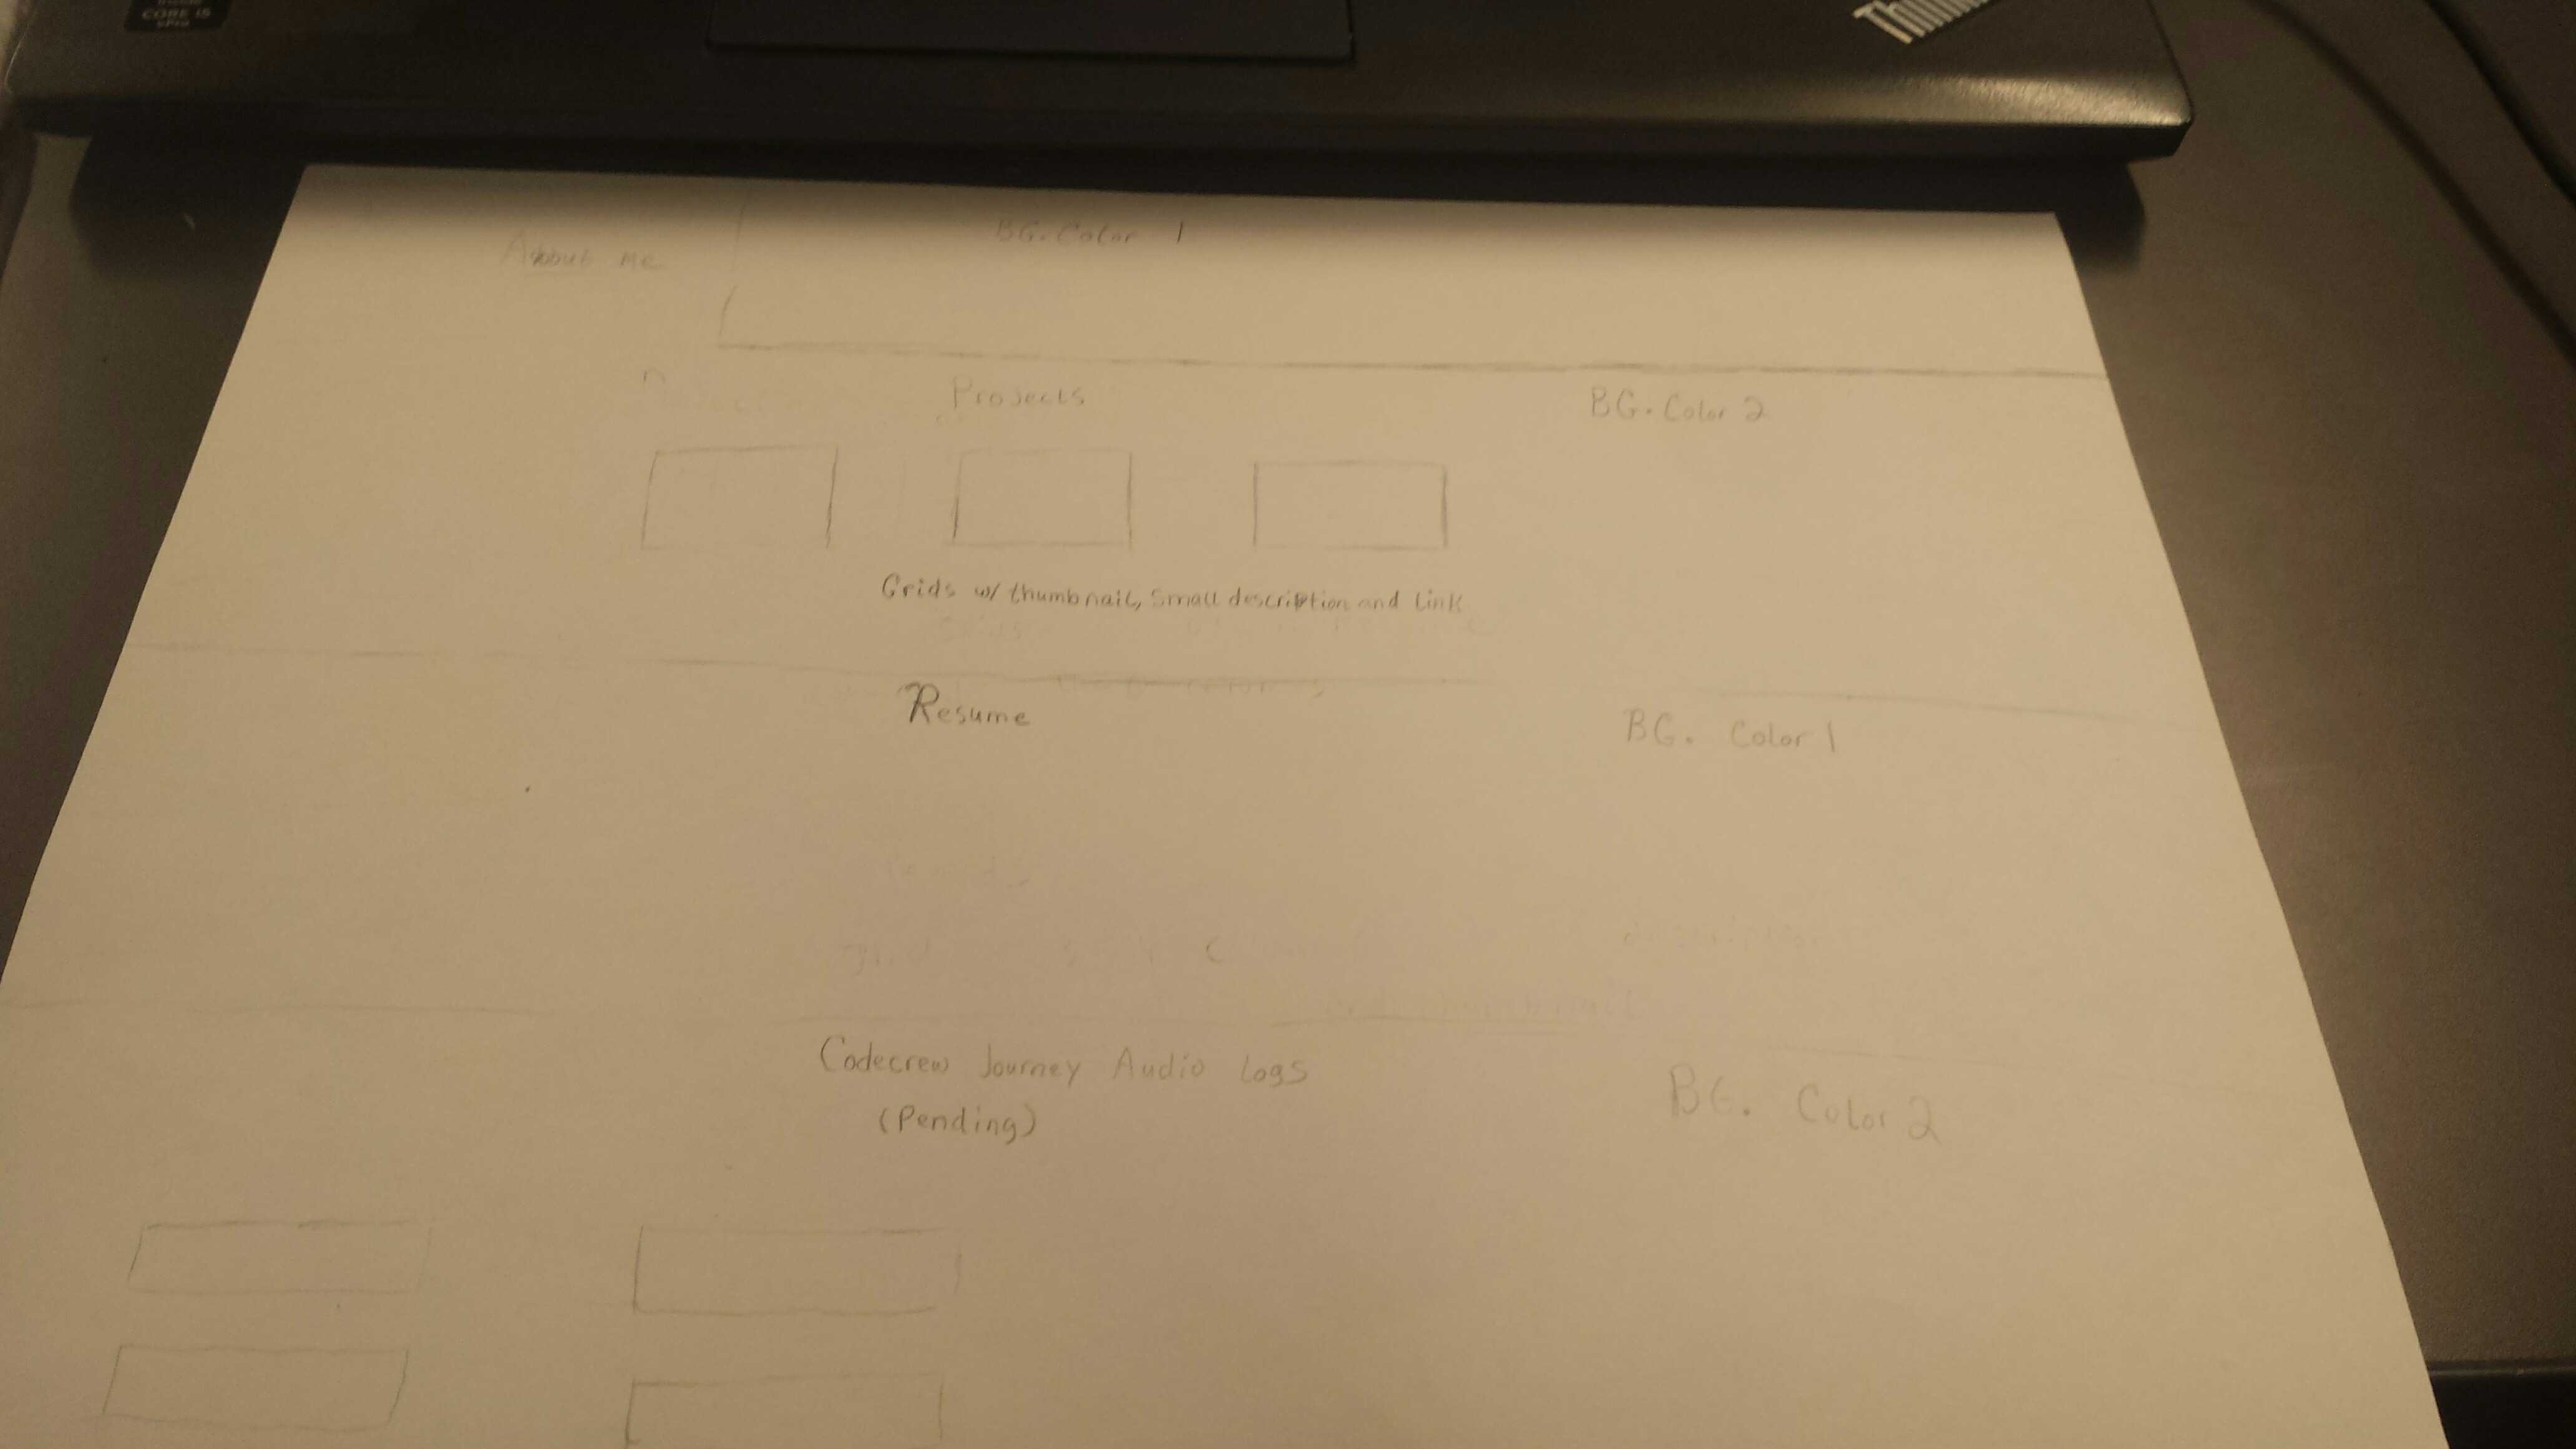 CORE i5
vPro
BG. Color 1
About me
Projects
BG. Color 2
Grids w/ thumbnail, small description and link
Resume
BG. Color 1
Codecrew Journey Audio Logs
(Pending)
BG. Color 2